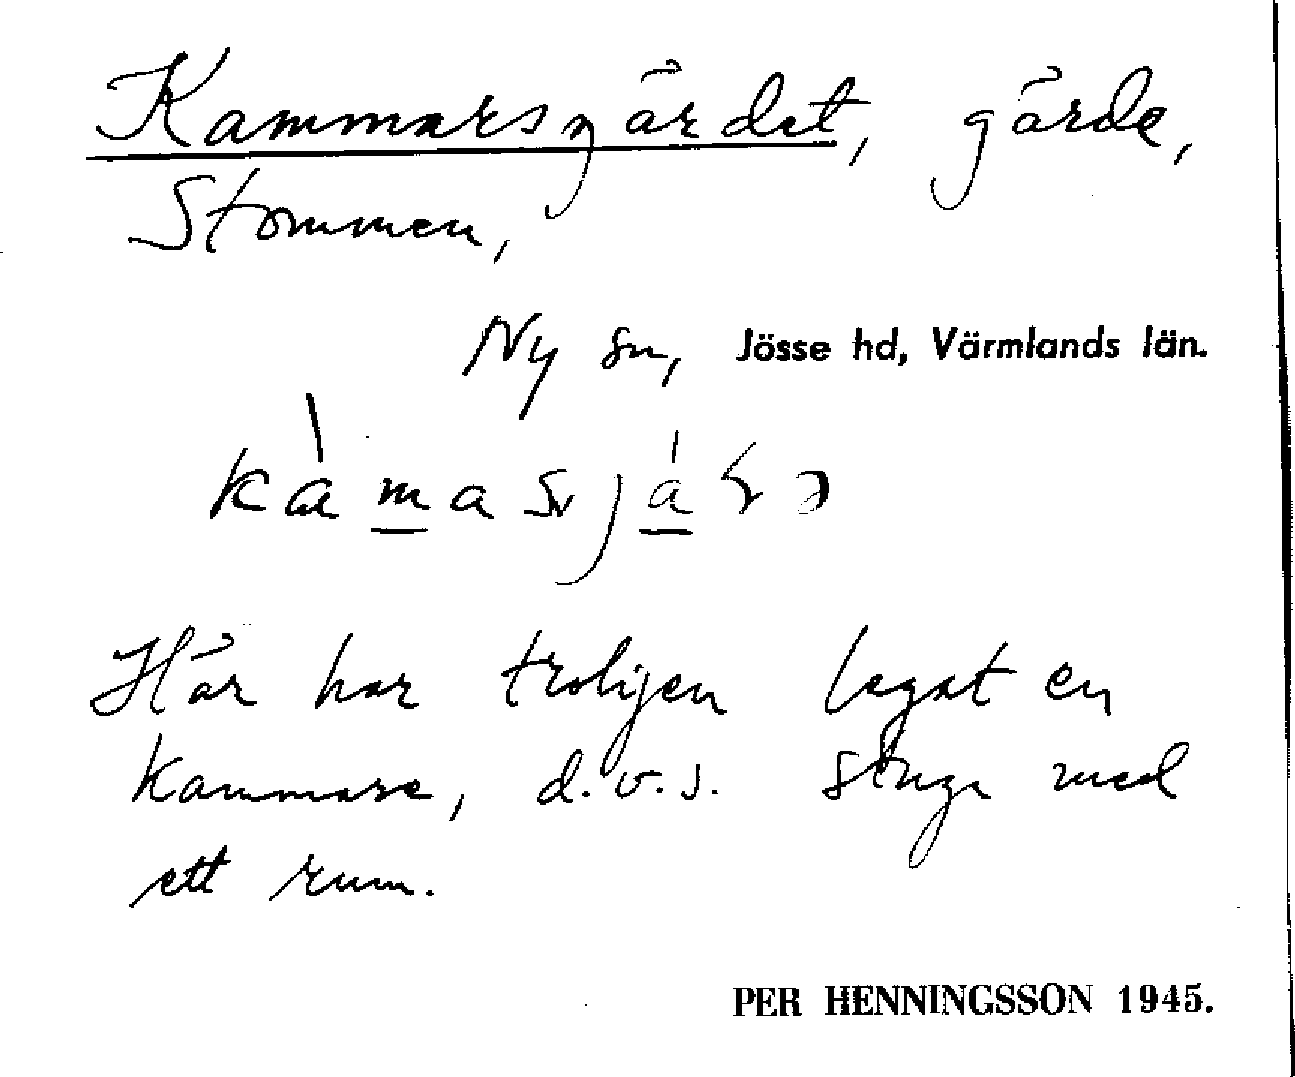 Kammarsgärdet, gärde,
Stommen,
Ny sn, Jösse hd, Värmlands län.
Här har troligen legat en
kammare, d.v.s. stuga med
ett rum.
PER HENNINGSSON 1945.